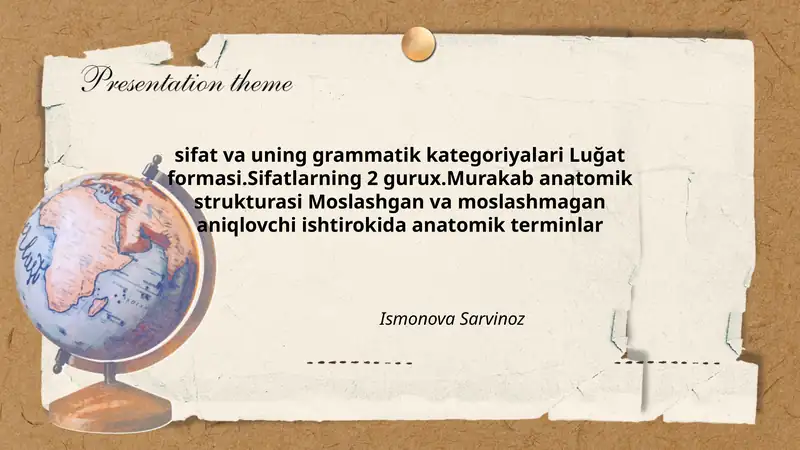 Presentation theme
sifat va uning grammatik kategoriyalari Luğat
formasi.Sifatlarning 2 gurux.Murakab anatomik
strukturasi Moslashgan va moslashmagan
aniqlovchi ishtirokida anatomik terminlar
Ismonova Sarvinoz